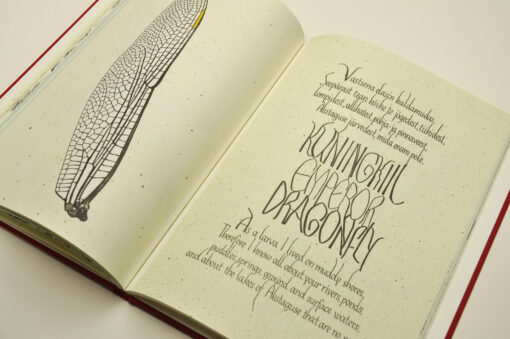 Vastsena elasin kaldamudas.
Seepärast tean kõike jõgedest, tiikidest,
lompidest, allikatest, põhja- ja pinnaveest,
Alutaguse järvedest, mida enam pole.
KUNINGKIIL
EMPEROR
DRAGONFLY
As a larva I lived on muddy shores,
Therefore I know all about your rivers, ponds,
puddles, springs, ground and surface waters,
and about the lakes of Alutaguse that are no